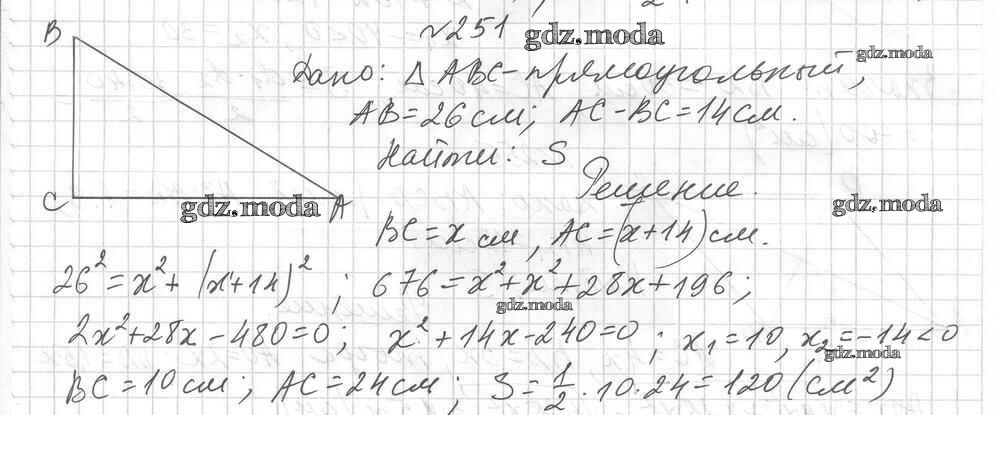 №251 gdz.moda
B
gdz.moda
Дано: △ ABC - прямоугольный,
AB=26 см; AC-BC=14 см.
Найти: S
Решение.
C gdz.moda A gdz.moda
BC=x см, AC=(x+14) см.
26²=x²+(x+14)²; 676=x²+x²+28x+196;
gdz.moda
2x²+28x-480=0; x²+14x-240=0; x₁=10, x₂=-14<0
gdz.moda
BC=10 см; AC=24 см; S=1/2·10·24=120 (см²)